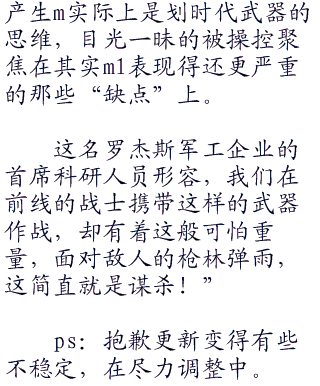 产生m实际上是划时代武器的
思维，目光一昧的被操控聚
焦在其实m1表现得还更严重
的那些“缺点”上。
这名罗杰斯军工企业的
首席科研人员形容，我们在
前线的战士携带这样的武器
作战，却有着这般可怕重
量，面对敌人的枪林弹雨，
这简直就是谋杀！”
ps：抱歉更新变得有些
不稳定，在尽力调整中。